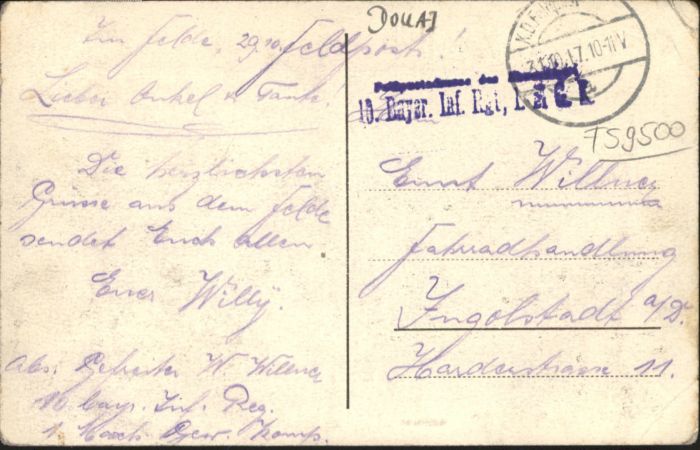 DOUAI
Im Felde, 29.10. Feldpost!
Lieber Onkel u. Tante!
Die herzlichsten
Grüsse aus dem Felde
sendet Euch allen
Euer Willÿ.
Abs: Gefreiter W. Willner
10. bayr. Inf. Reg.
1. Masch. Gew. Komp.
10-11V
10. Bayer. Inf. Rgt,
TS9500
Ernst Willner
Fahrradhandlung
Ingolstadt a/D.
Harderstrasse 11.